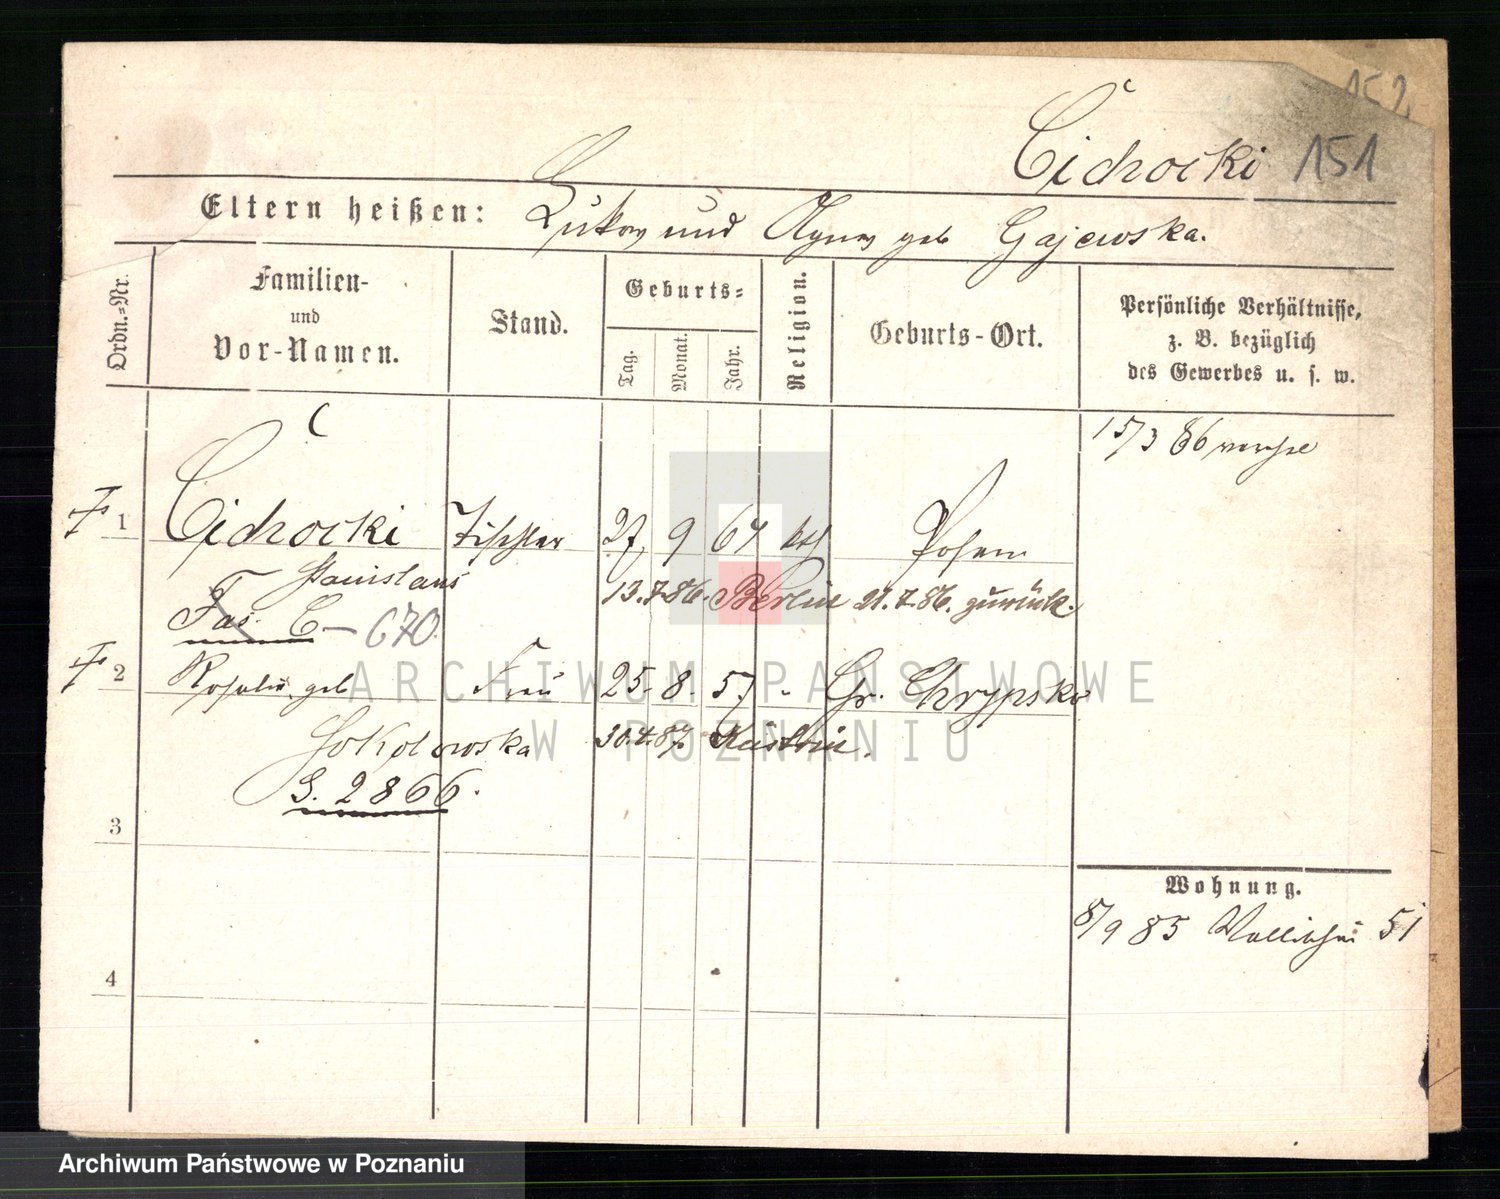 152
Cichocki 151
Eltern heißen: Lukas und Agnes geb Gajewska.
Ordn.=Nr.
Familien-
und
Vor-Namen.
Stand.
Geburts=
Tag.
Monat.
Jahr.
Religion.
Geburts-Ort.
Persönliche Verhältnisse,
z. B. bezüglich
des Gewerbes u. s. w.
15/3 86
1 Cichocki Tischler 27 9 64 kat Posen
Stanislaus 13.7.86. Berlin 21.7.86. zurück.
Fas. C — 670
2 Rosalie geb Frau 25. 8. 57 - Gr. Chrypsko
Sokolowska 30.4.87. Küstrin.
S. 2866.
3
Wohnung.
8/9 85 Wallischei 51
4
ARCHIWUM PAŃSTWOWE
W POZNANIU
Archiwum Państwowe w Poznaniu